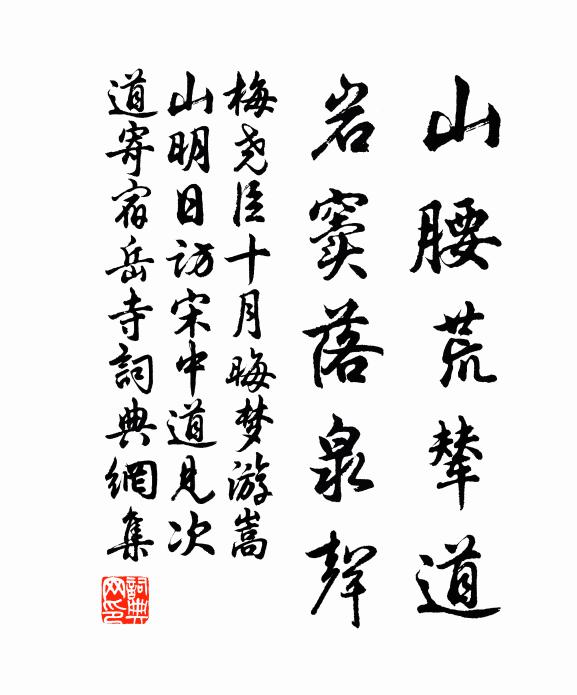 山腰荒辇道
岩窦落泉聲
梅尧臣十月晦梦游嵩
山明日访宋中道见次
道寄宿岳寺詞典網集
詞典網印